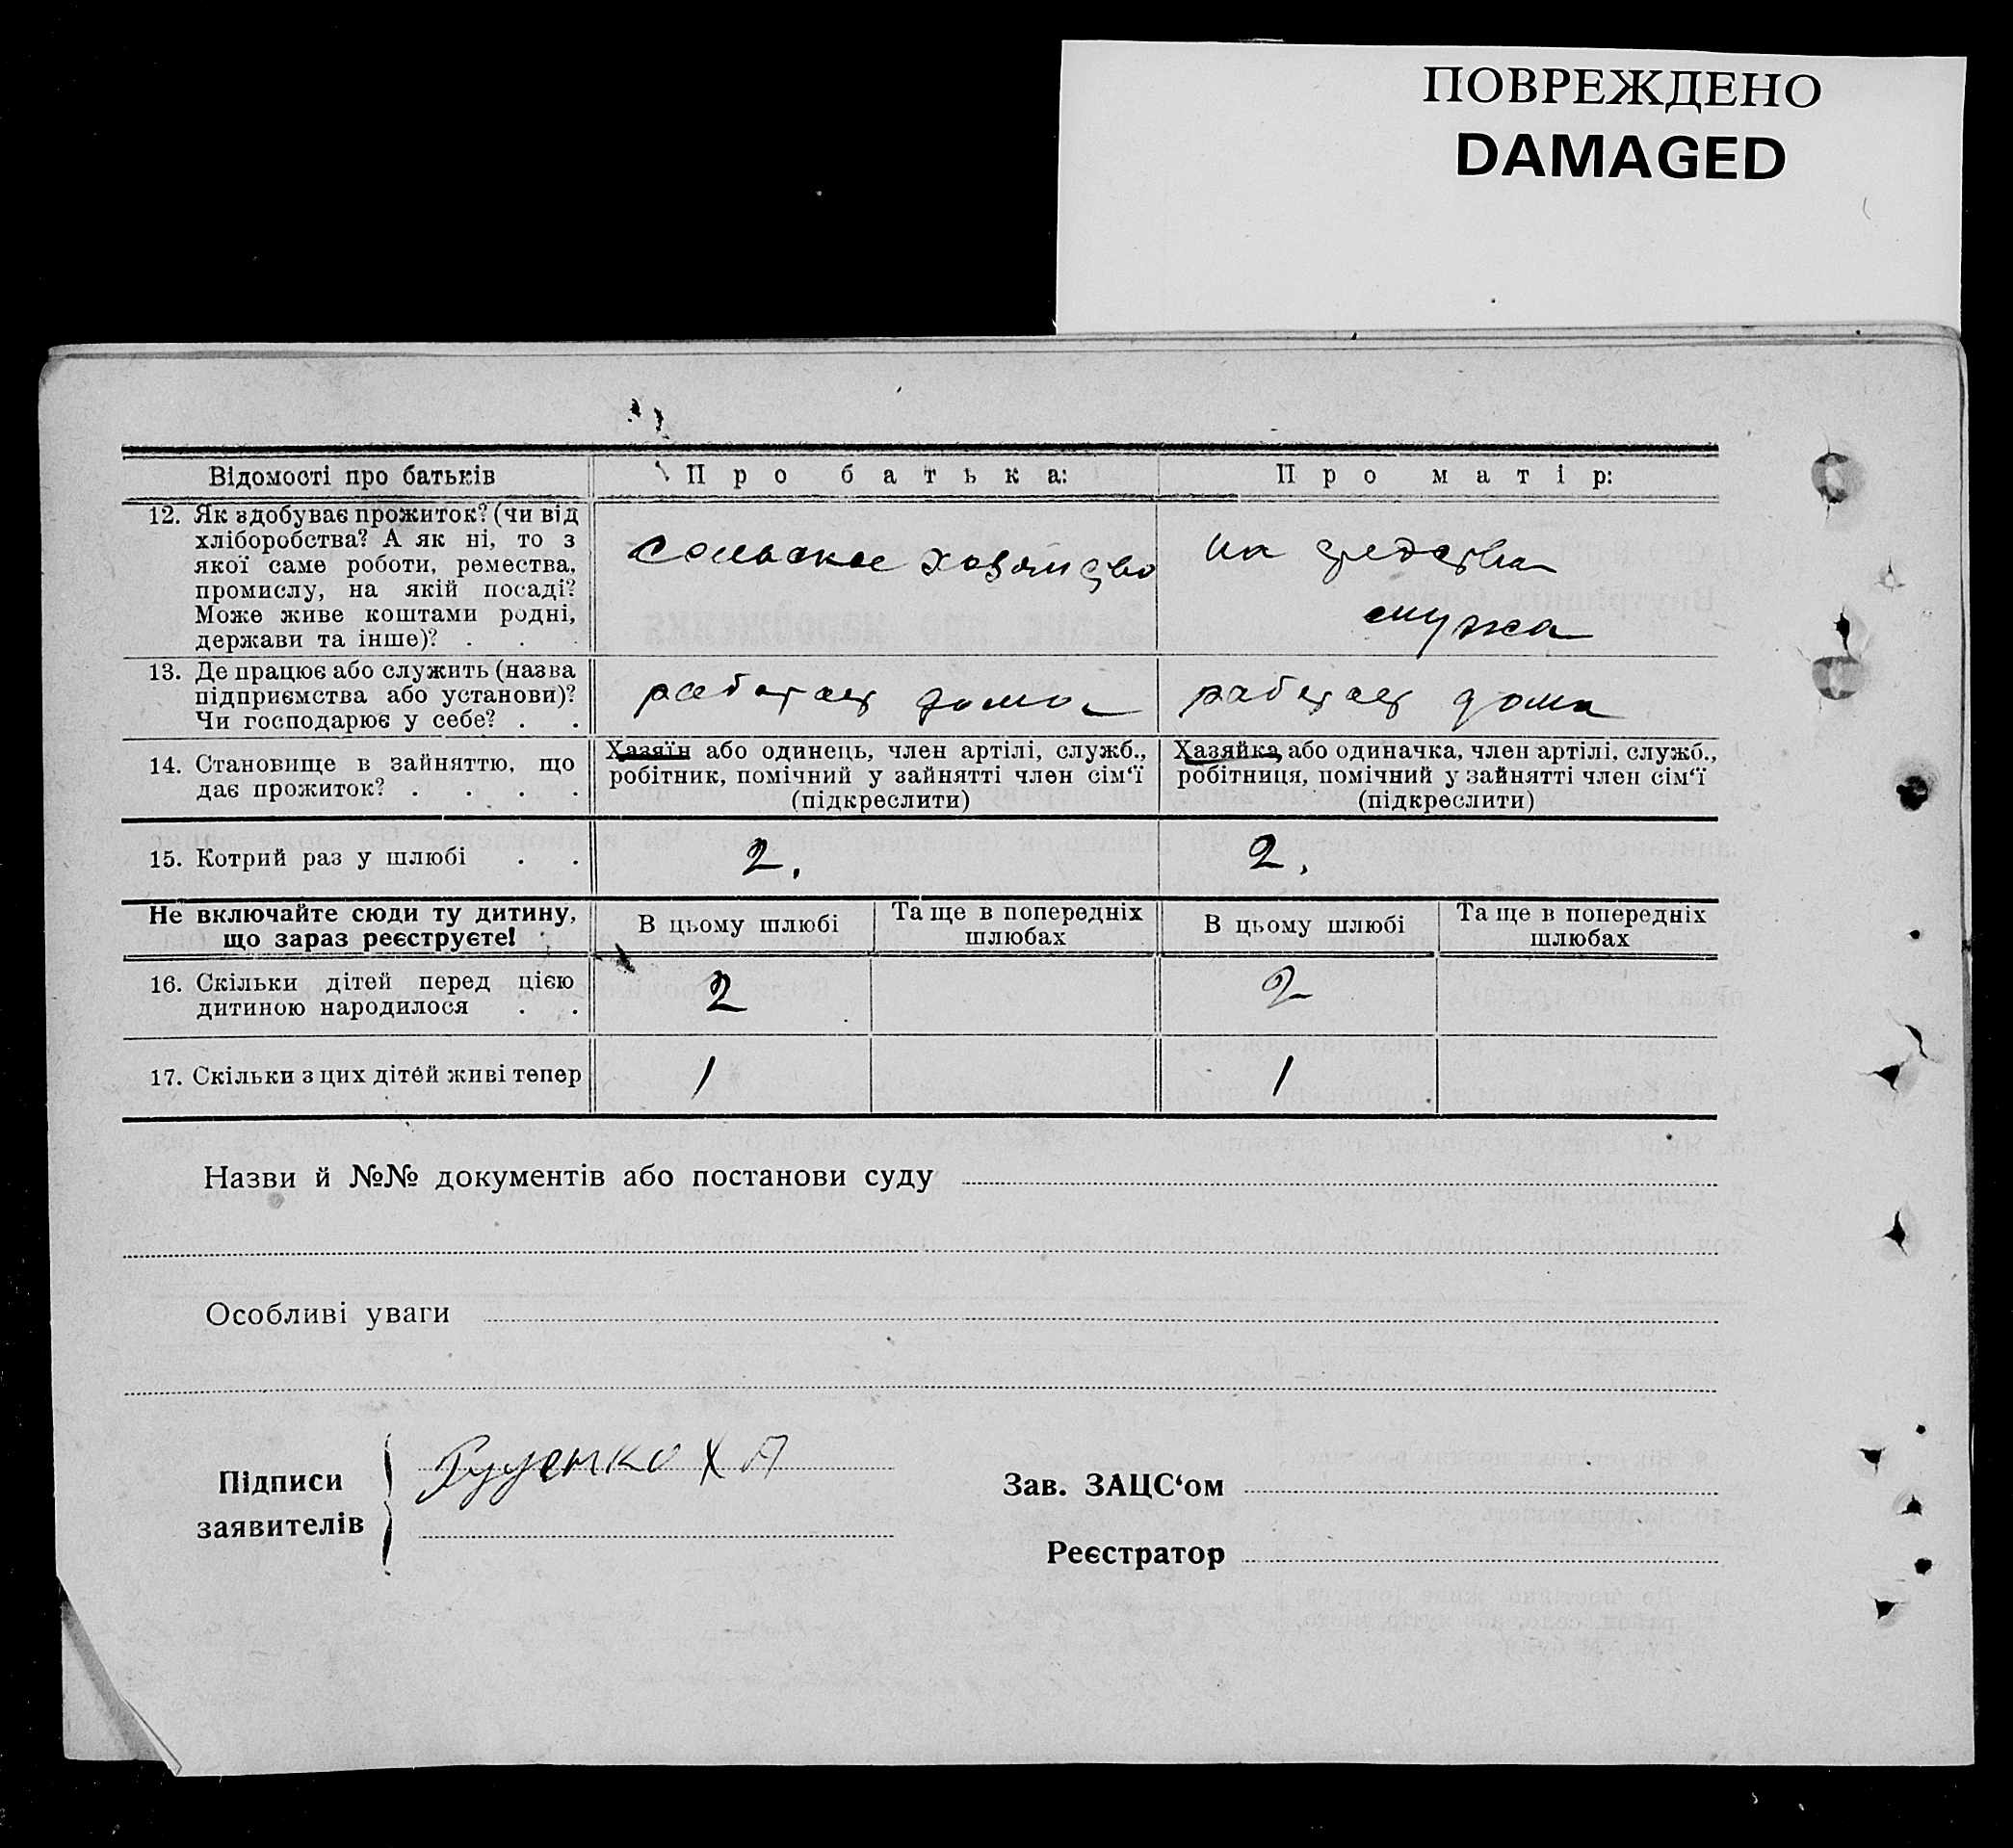 ПОВРЕЖДЕНО
DAMAGED
Відомості про батьків
Про батька:
Про матір:
12. Як здобуває прожиток? (чи від
хліборобства? А як ні, то з
якої саме роботи, ремества,
промислу, на якій посаді?
Може живе коштами родні,
держави та інше)? . . .
сельское хозяйство
на средства
мужа
13. Де працює або служить (назва
підприємства або установи)?
Чи господарює у себе? . .
работает дома
работает дома
14. Становище в зайняттю, що
дає прожиток? . . . .
Хазяїн або одинець, член артілі, служб.,
робітник, помічний у зайнятті член сім‘ї
(підкреслити)
Хазяйка, або одиначка, член артілі, служб.,
робітниця, помічний у зайнятті член сім‘ї
(підкреслити)
15. Котрий раз у шлюбі . .
2.
2.
Не включайте сюди ту дитину,
що зараз реєструєте!
В цьому шлюбі
Та ще в попередніх
шлюбах
В цьому шлюбі
Та ще в попередніх
шлюбах
16. Скільки дітей перед цією
дитиною народилося . .
2
2
17. Скільки з цих дітей живі тепер
1
1
Назви й №№ документів або постанови суду
Особливі уваги
Підписи
заявителів
Х А
Зав. ЗАЦС‘ом
Реєстратор